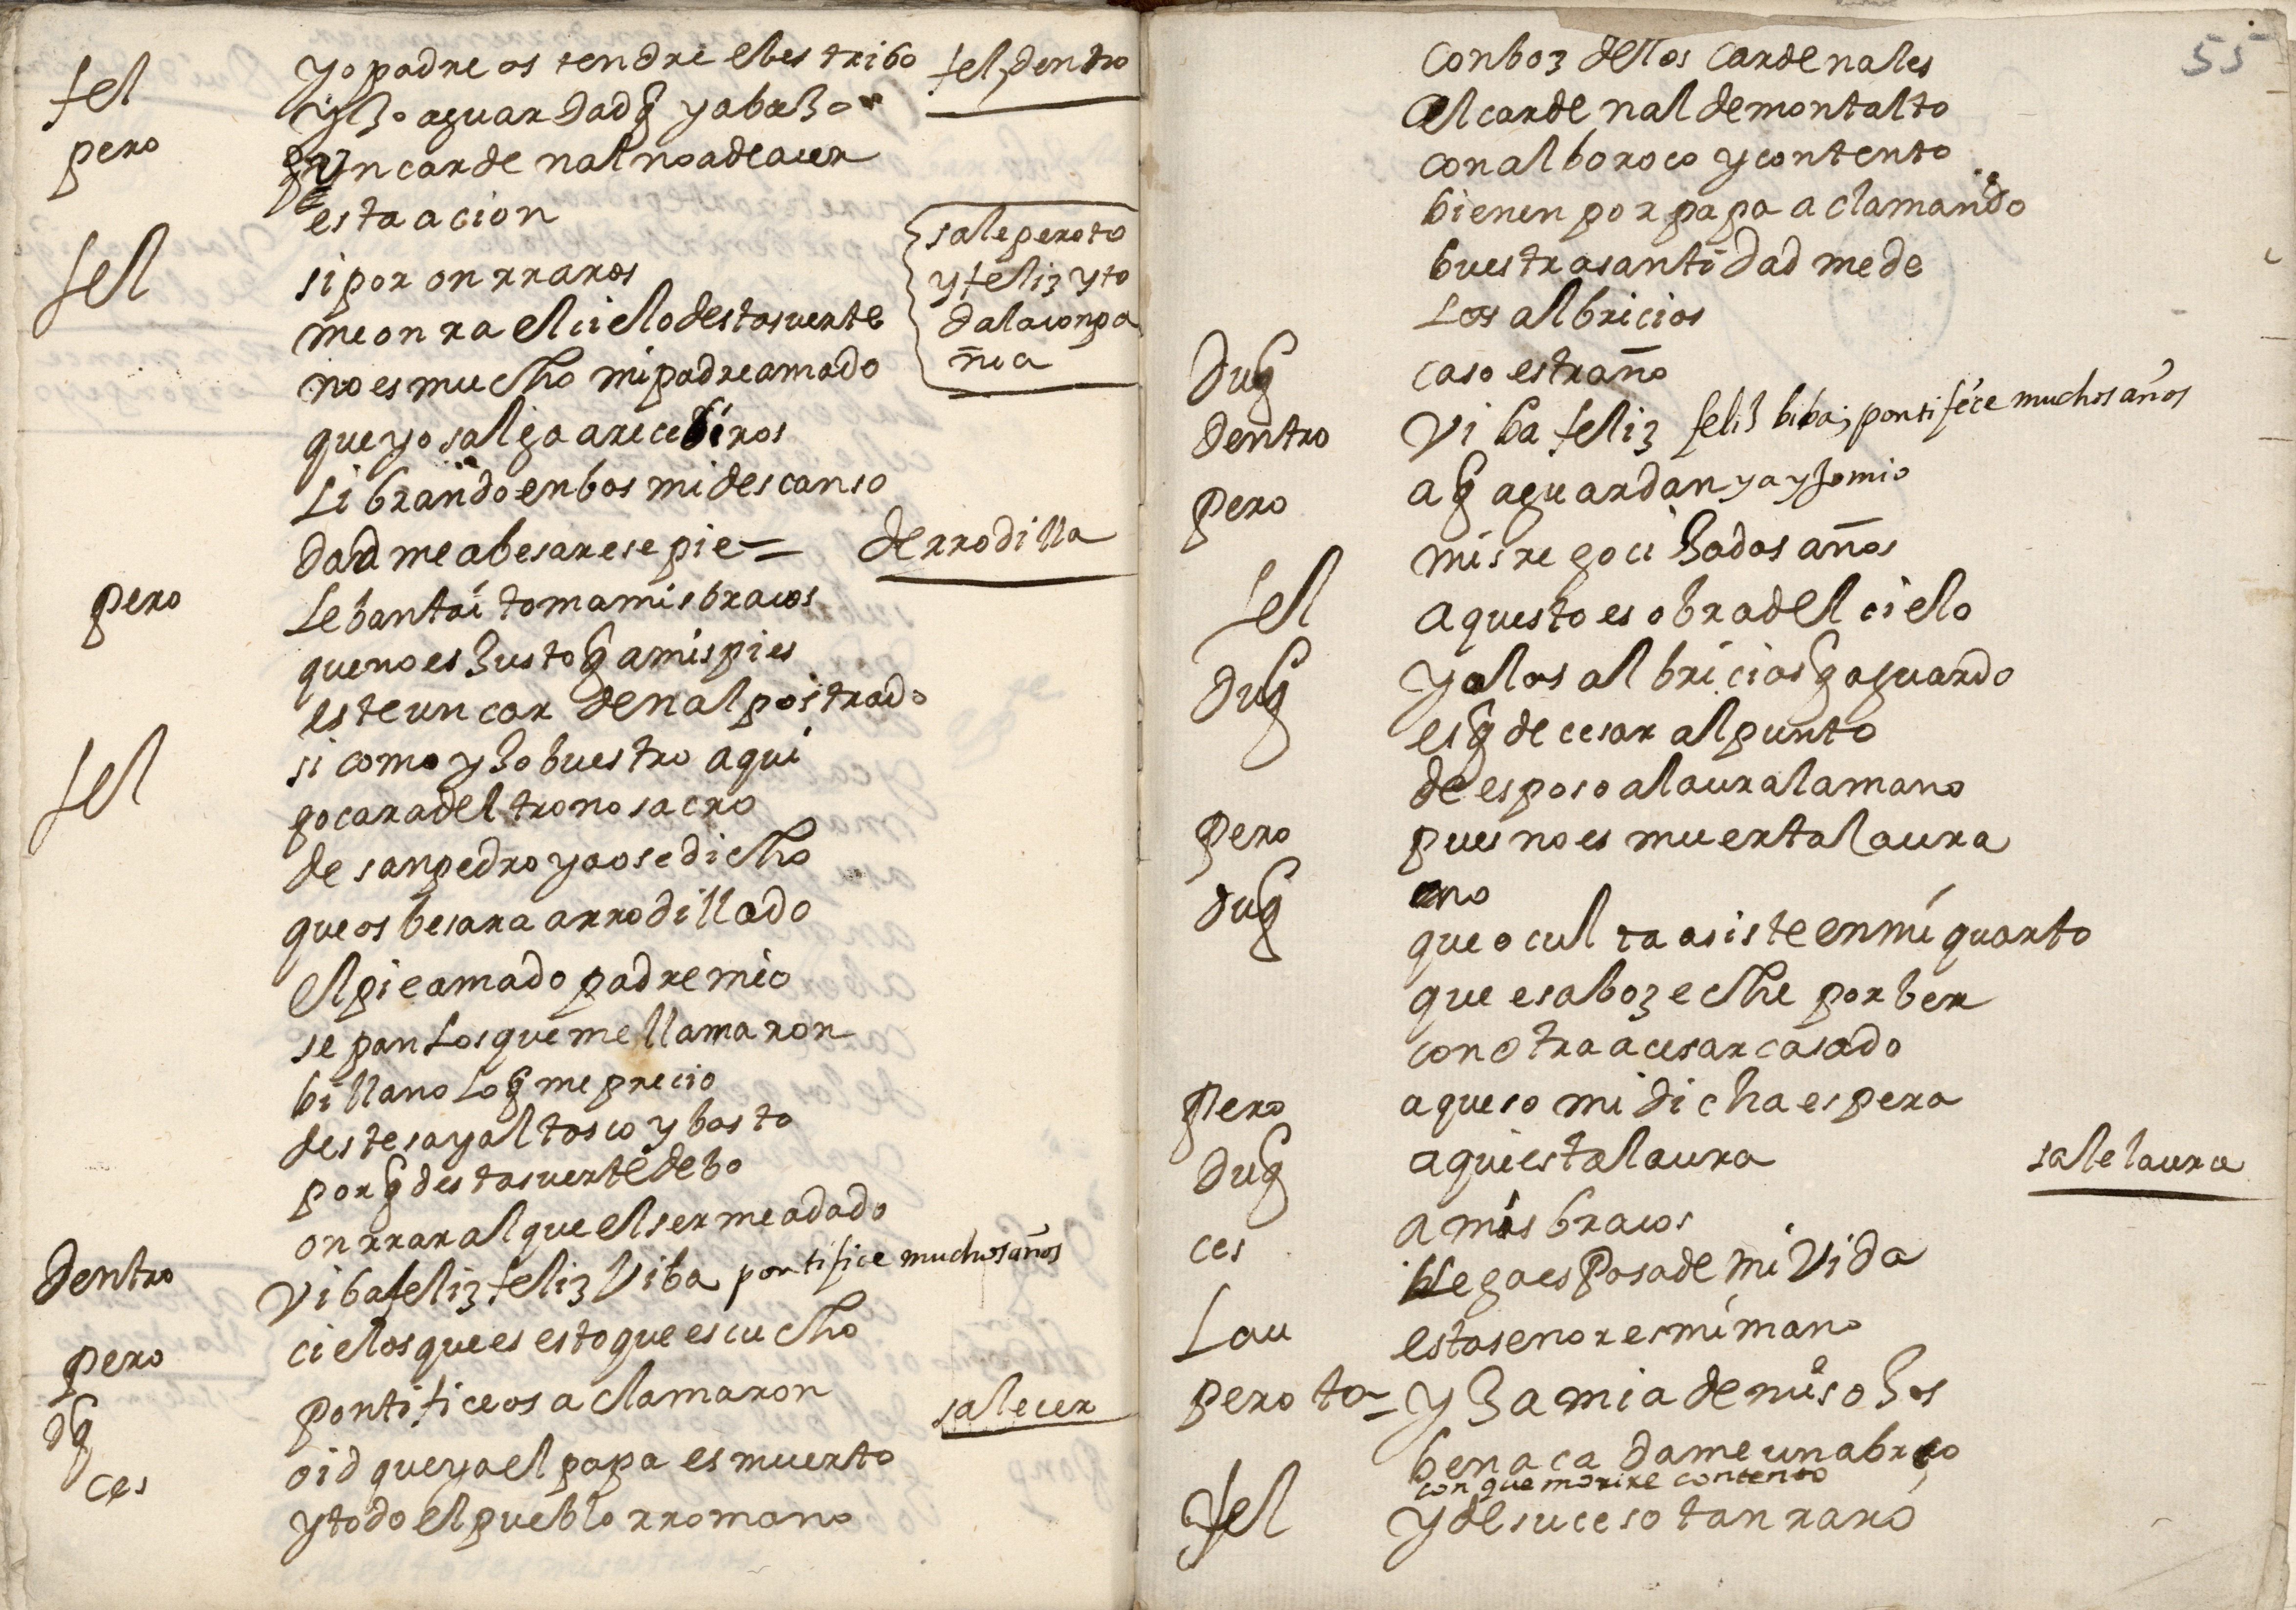 fel yo padre os tendre el estribo fel, dentro
yJo aguardad q̃ ya baJo
pero q̃ un cardenal no a de acer
esta acion
sale peroto
y feliz y to
da la conpa
ñia
fel si por onrraros
me onra el cielo desta suerte
no es mucho mi padre amado
que yo salga a recebiros
Librando en bos mi descanso
dadme a besar ese pie = de rrodilla
pero Lebanta i toma mis bracos
que no es Justo q̃ a mis pies
este un cardenal postrado
fel si como yJo buestro aqui
gocara del trono sacro
de san pedro ya os e dicho
que os besara arrodillado
el pie amado padre mio
sepan Los que me llamaron
billano Lo q̃ me precio
deste sayal tosco y basto
por q̃ desta suerte debo
onrrar al que el ser me a dado
dentro Viba feliz feliz Viba pontifice muchos años
pero cielos que es esto que escucho
dq̃ pontifice os aclamaron sale cer
ces oid que ya el papa es muerto
y todo el pueblo rromano
55
con boz de los cardenales
al cardenal de montalto
con alboroco y contento
bienen por papa aclamando
buestra santidad me de
Las albricias
duq̃ caso estraño
dentro Viba feliz feliz biba; pontifice muchos años
pero a q̃ aguardan ya yJo mio
mis regociJados años
fel aquesto es obra del cielo
duq̃ y a las albricias q̃ aguardo
es q̃ de cesar al punto
de esposo a laura la mano
pero pues no es muerta laura
duq̃ no
que oculta asiste en mi quarto
que esa boz eche por ber
con otra a cesar casado
pero aqueso mi dicha espera
duq̃ aqui esta laura sale laura
ces a mis bracos
llega esposa de mi Vida
Lau esta senor es mi mano
peroto= yJa mia de mis oJos
ben aca dame un abraco
con que morire contento
fel y de suceso tan raro